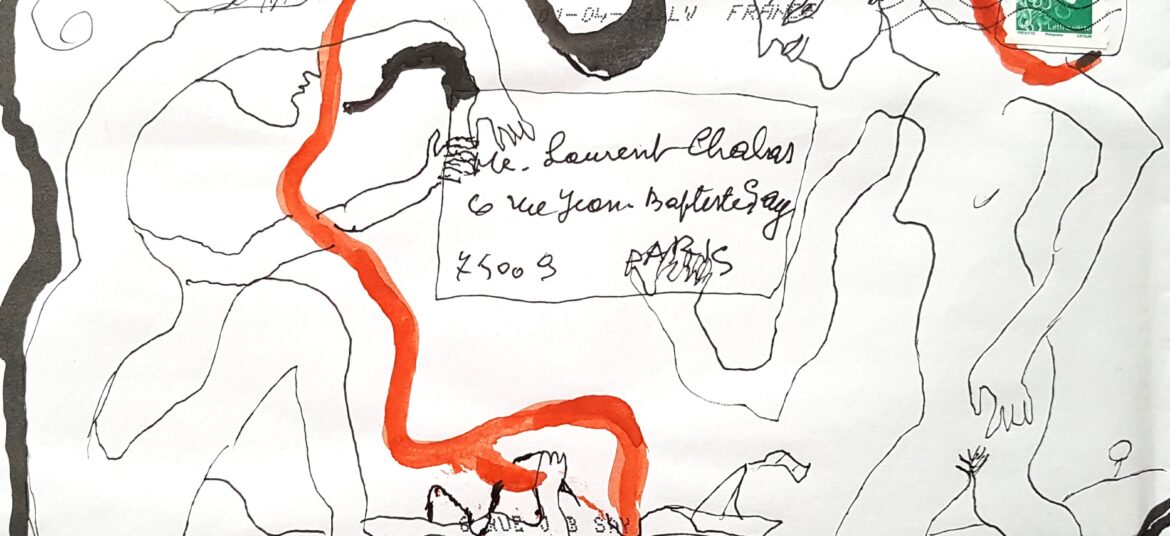 LV FRANCE
Lettre verte
Me. Laurent Chabas
6 rue Jean Baptiste Say
75009 PARIS
6 RUE J B SAY